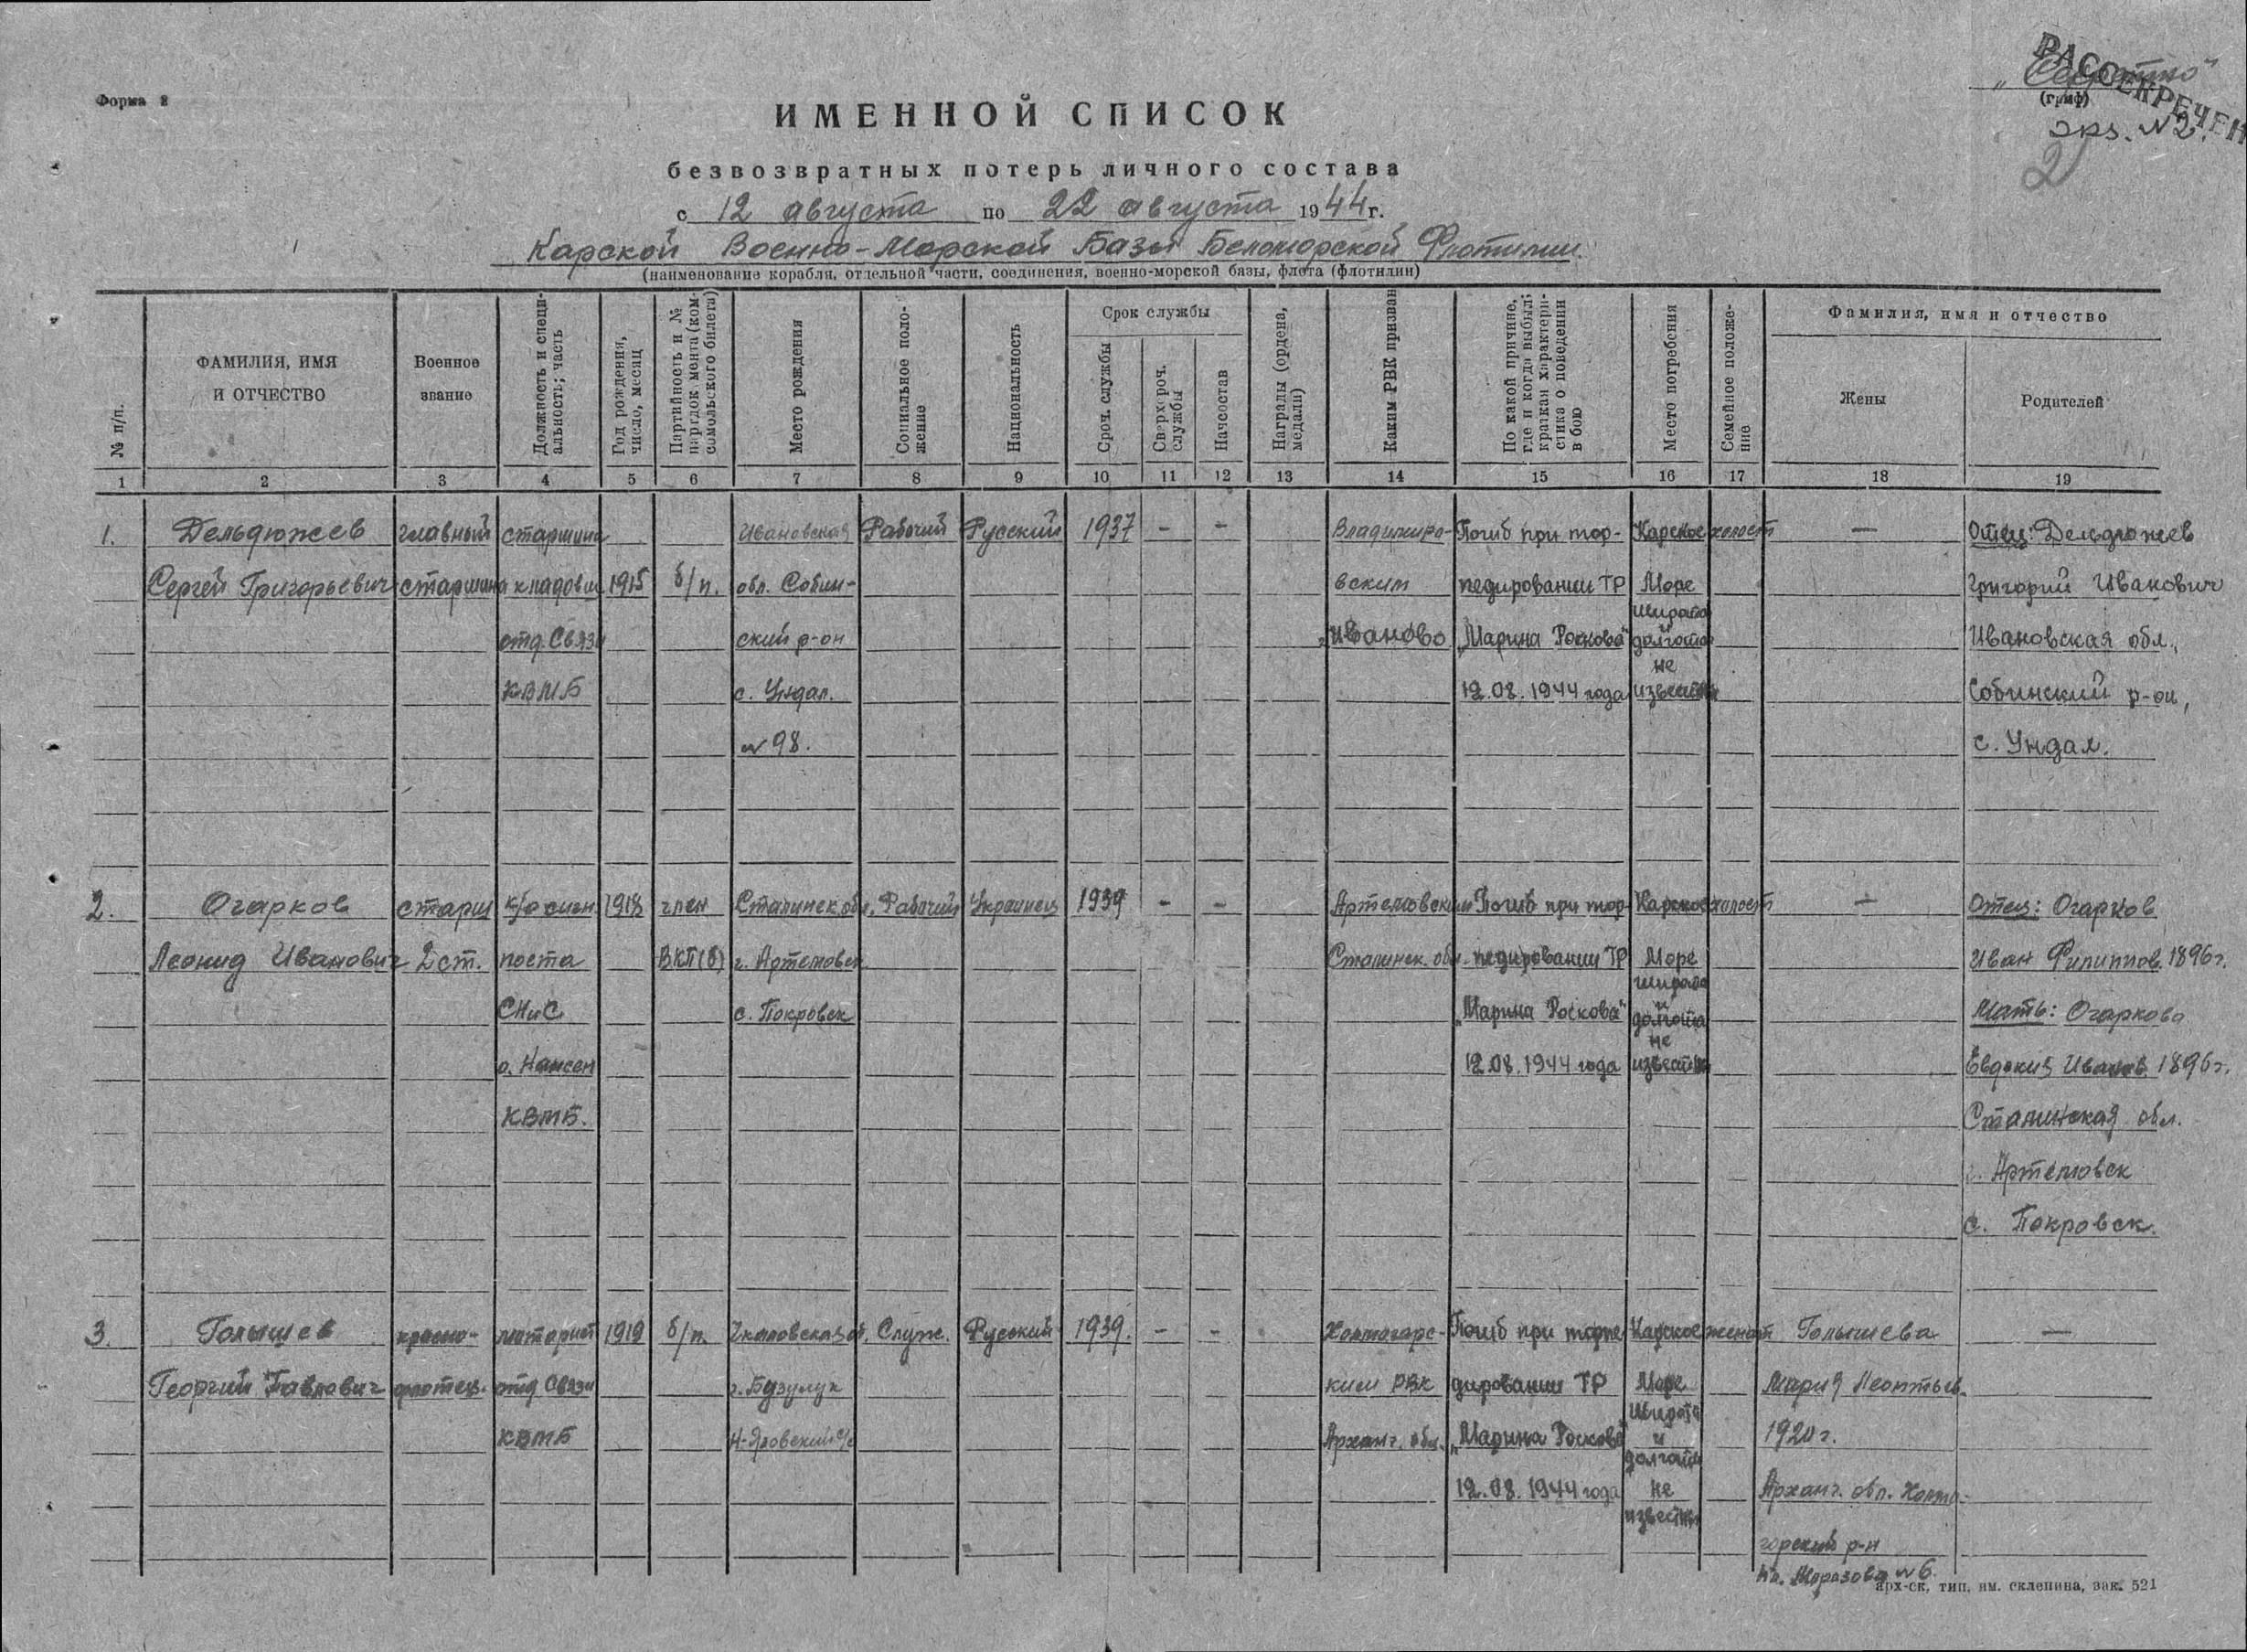 Форма 2
РАССЕКРЕЧЕН
„Секретно"
(гриф)
экз. №2.
2
ИМЕННОЙ СПИСОК
безвозвратных потерь личного состава
с 12 августа по 22 августа 1944 г.
Карской Военно-Морской Базы Беломорской Флотилии.
(наименование корабля, отдельной части, соединения, военно-морской базы, флота (флотилии)
№ п/п.
ФАМИЛИЯ, ИМЯ
И ОТЧЕСТВО
Военное
звание
Должность и специ-
альность; часть
Год рождения,
число, месяц
Партийность и №
партдокумента (ком-
сомольского билета)
Место рождения
Социальное поло-
жение
Национальность
Срок службы
Сроч. службы
Сверхсроч.
службы
Начсостав
Награды (ордена,
медали)
Каким РВК призван
По какой причине,
где и когда выбыл;
краткая характери-
стика о поведении
в бою
Место погребения
Семейное положе-
ние
Фамилия, имя и отчество
Жены
Родителей
1 2 3 4 5 6 7 8 9 10 11 12 13 14 15 16 17 18 19
1. Дельдюжев главный старшина Ивановская Рабочий Русский 1937 - - Владимиро- Погиб при тор- Карское холост — Отец: Дельдюжев
Сергей Григорьевич старшина кладовщ 1915 б/п. обл. Собин- вским педировании ТР Море Григорий Иванович
широта
отд. Связи ский р-он Иваново „Марина Раскова" долгота Ивановская обл.,
не
КВМБ с. Ундол. 12.08.1944 года известны Собинский р-он,
№ 98. с. Ундол.
2. Огарков старш к/о сигн. 1918 член Сталинск. обл. Рабочий Украинец 1939 - - Артемовским Погиб при тор- Карское холост — Отец: Огарков
Леонид Иванович 2 ст. поста ВКП(б) г. Артемовск Сталинск. обл. педировании ТР Море Иван Филиппов. 1896 г.
широта
СНиС с. Покровск „Марина Раскова" и Мать: Огаркова
долгота
не
о. Нансен 12.08.1944 года известны Евдокия Иванов. 1896 г.
КВМБ. Сталинская обл.
г. Артемовск
с. Покровск.
3. Голышев красно- моторист 1919 б/п. Чкаловская об. Служ. Русский 1939. - - Холмогорс- Погиб при торпе Карское женат Голышева —
Георгий Павлович флотец. отд. Связи г. Бузулук ким РВК дировании ТР Море Мария Леонтьев.
широта
КВМБ Арханг. обл. „Марина Раскова" и 1920 г.
долгота
12.08.1944 года не Арханг. обл. Холмо-
известны
горский р-н
№ 6.
арх-ск, тип. им. склепина, зак. 521